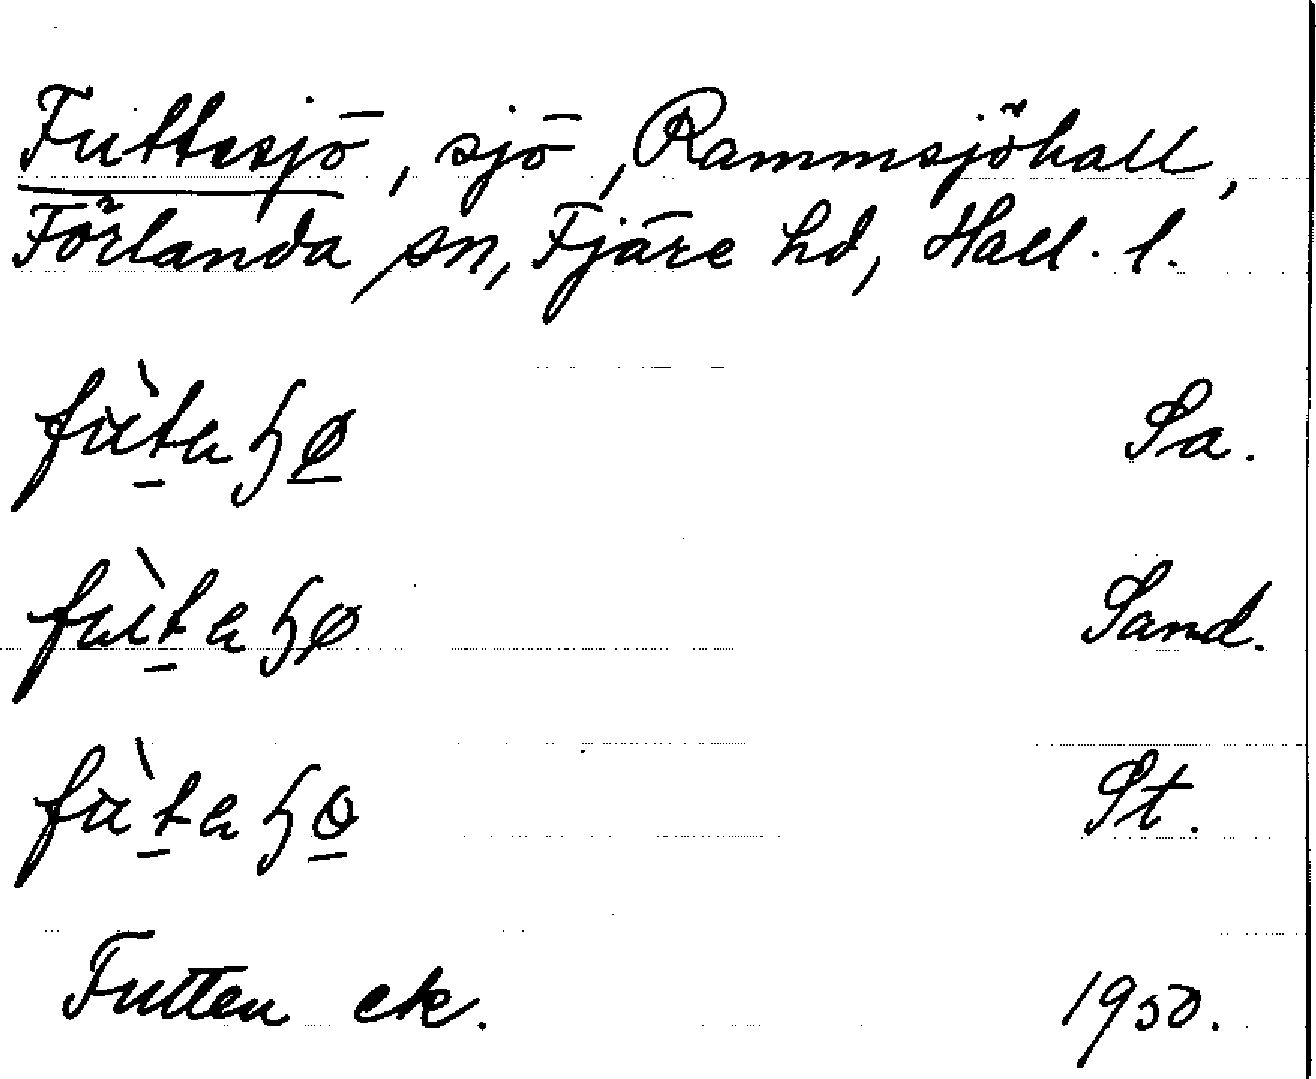 Futtesjö, sjö, Rammsjöhall,
Förlanda sn, Fjäre hd, Hall. l.
Sa.
Sand.
St.
Futten ek. 1950.